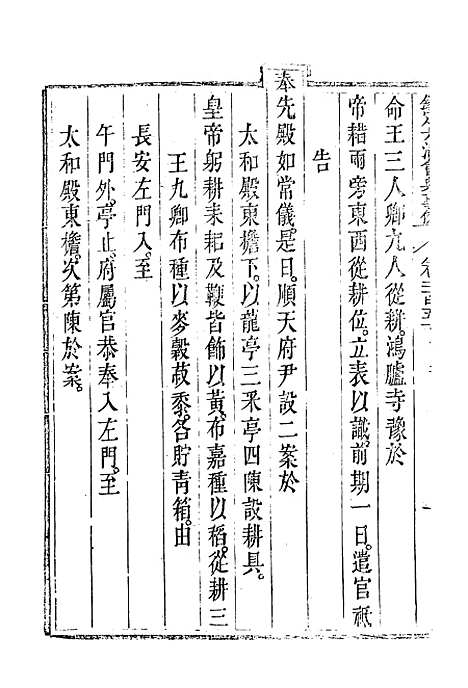 命王三人卿九人從耕鴻臚寺豫於
帝耤兩旁東西從耕位立表以識前期一日遣官祗
告
奉先殿如常儀是日順天府尹設二案於
太和殿東檐下以龍亭三釆亭四陳設耕具
皇帝躬耕耒耜及鞭皆飾以黃布嘉種以稻從耕三
王九卿布種以麥穀菽黍各貯青箱由
長安左門入至
午門外亭止府屬官恭奉入左門至
太和殿東檐次第陳於案